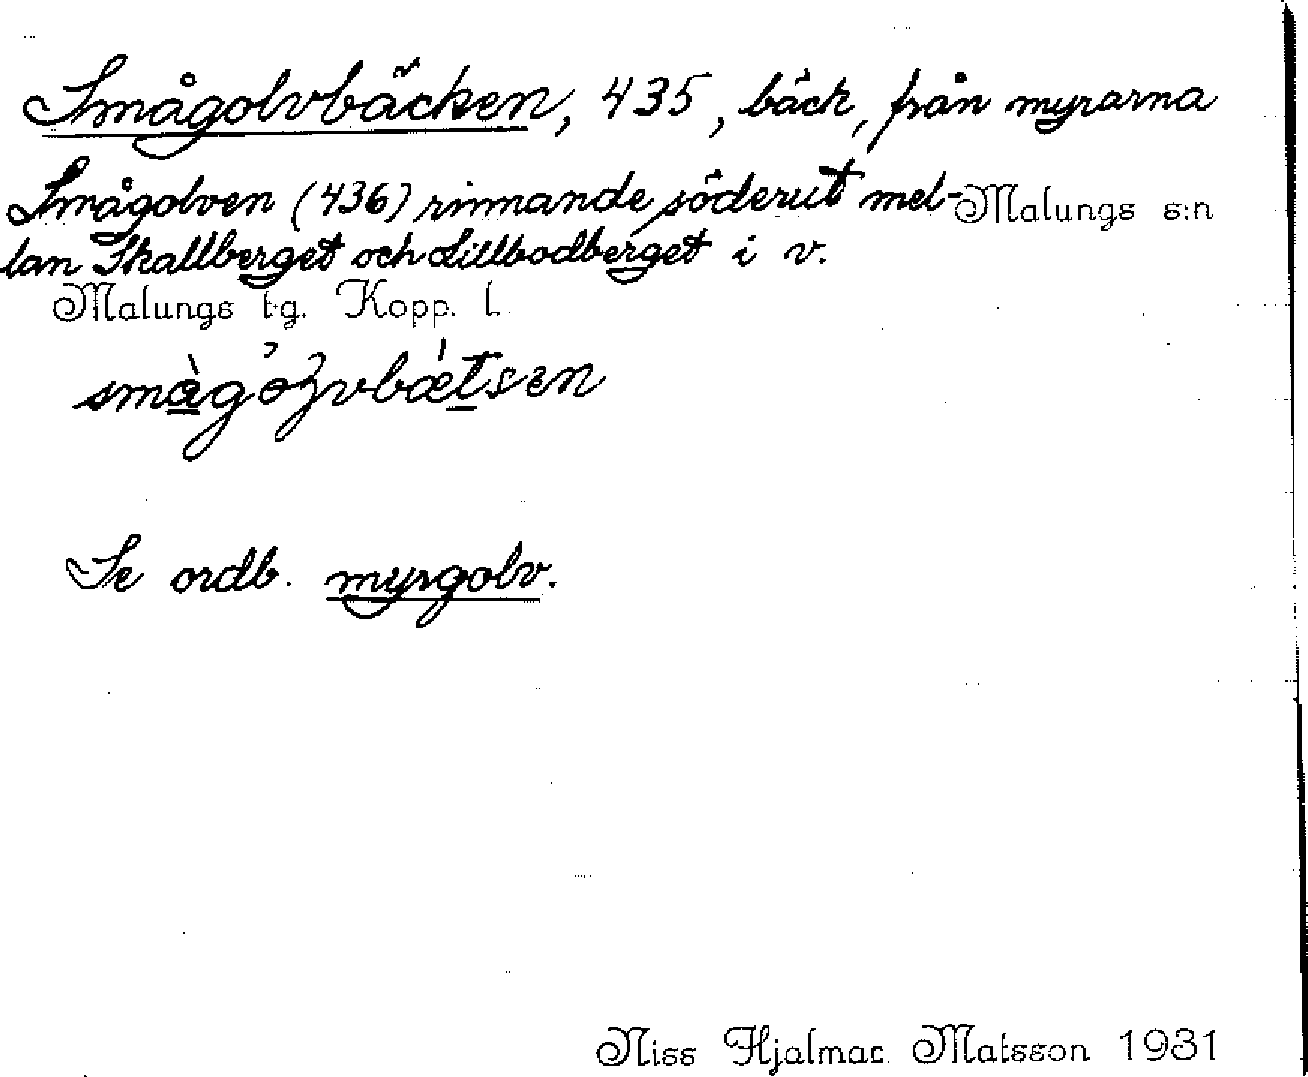 Smågolvbäcken, 435, bäck, från myrarna
Smågolven (436) rinnande söderut mel-
Malungs s:n
lan Skallberget och Lillbodberget i v.
Malungs tg. Kopp. l.
Se ordb. myrgolv.
Niss Hjalmar Matsson 1931